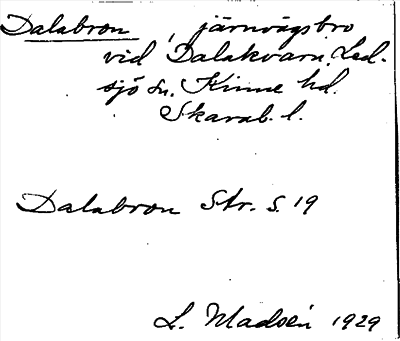 Dalabron, järnvägsbro
vid Dalakvarn, Led-
sjö sn. Kinne hd.
Skarab. l.
Dalabron Str. s. 19
L. Madsén 1929